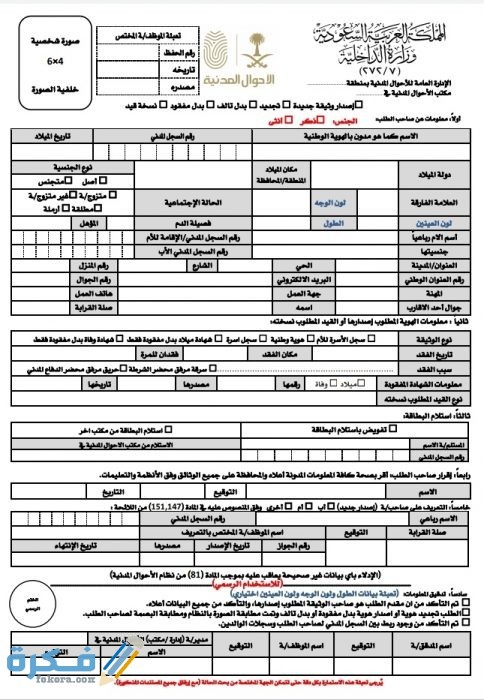 المملكة العربية السعودية
وزارة الداخلية
(٢٧٢/٧)
الإدارة العامة للأحوال المدنية بمنطقة
مكتب الأحوال المدنية في
الأحوال المدنية
تعبئة الموظف/ة المختص
رقم الحفظ
تاريخه
مصدره
صورة شخصية
6×4
خلفية الصورة
□إصدار وثيقة جديدة □ تجديد □ بدل تالف □ بدل مفقود □ نسخة قيد
أولاً: معلومات عن صاحب الطلب: الجنس: □ذكر □ أنثى
الاسم كما هو مدون بالهوية الوطنية رقم السجل المدني تاريخ الميلاد
دولة الميلاد مكان الميلاد المنطقة/المحافظة نوع الجنسية □ أصل □ متجنس
العلامة الفارقة لون الوجه الحالة الإجتماعية □ متزوج/ة □ غير متزوج/ة □ مطلقة □ أرملة
لون العينين الطول فصيلة الدم المؤهل
اسم الام رباعياً رقم السجل المدني/الإقامة للأم
جنسيتها رقم السجل المدني الأب
العنوان/المدينة الحي الشارع رقم المنزل
رقم العنوان الوطني البريد الالكتروني رقم الجوال
المهنة جهة العمل هاتف العمل
جوال أحد الاقارب اسمه صلة القرابة
ثانياً : معلومات الهوية المطلوب إصدارها أو القيد المطلوب نسخته:
نوع الوثيقة □ سجل الأسرة للأم □ هوية وطنية □ سجل اسرة □ شهادة ميلاد بدل مفقودة فقط □ شهادة وفاة بدل مفقودة فقط.
تاريخ الفقد مكان الفقد فقدان للمرة
سبب الفقد □ سرقة مرفق محضر الشرطة □ حريق مرفق محضر الدفاع المدني
معلومات الشهادة المفقودة □ ميلاد □ وفاة رقمها مصدرها تاريخها
نوع القيد المطلوب نسخته
ثالثاً: استلام البطاقة:
□ تفويض باستلام البطاقة □ استلام البطاقة من مكتب اخر
المستلم/ة الاسم الاستلام من مكتب الاحوال المدنية في
رقم السجل المدني
رابعاً: إقرار صاحب الطلب: أقر بصحة كافة المعلومات المدونة أعلاه والمحافظة على جميع الوثائق وفق الأنظمة والتعليمات.
الاسم التوقيع التاريخ
خامساً: التعريف على صاحب/ة (إصدار جديد) □ أب □ أم □ أخرى وفق المنصوص عليه في المادة (151,147) من اللائحة :
الاسم رباعي رقم السجل المدني
صلة القرابة التوقيع اسم الموظف/ة المختص بالتعريف التوقيع
رقم الجواز تاريخ الإصدار مصدرها تاريخ الإنتهاء
(الإدلاء بأي بيانات غير صحيحة يعاقب عليه بموجب المادة (81) من نظام الأحوال المدنية)
(للاستخدام الرسمي)
سادساً: تدقيق المعلومات: (تعبئة بيانات الطول ولون الوجه ولون العينين اختياري)
□ تم التأكد من ان مقدم الطلب هو صاحب الوثيقة المطلوب إصدارها، والتأكد من جميع البيانات أعلاه.
□ الطلب تجديد هوية أو إصدار هوية بدل مفقودة أو بدل تالف وتمت مطابقة الصورة بالنظام ومطابقة البصمة لصاحب الطلب.
□ تم التأكد من وجود ربط بين السجل المدني لصاحب الطلب وسجلات الوالدين.
الختم الرسمي
اسم المدقق/ة التوقيع اسم الموظف/ة التوقيع مدير/ة (إدارة /مكتب) الأحوال المدنية في
الاسم التوقيع
يُرجى تعبئة هذه الاستمارة بكل دقة حتى تتمكن الجهة المختصة من بحث الحالة (مع إرفاق جميع المستندات المذكورة).
فكرة
fekera.com